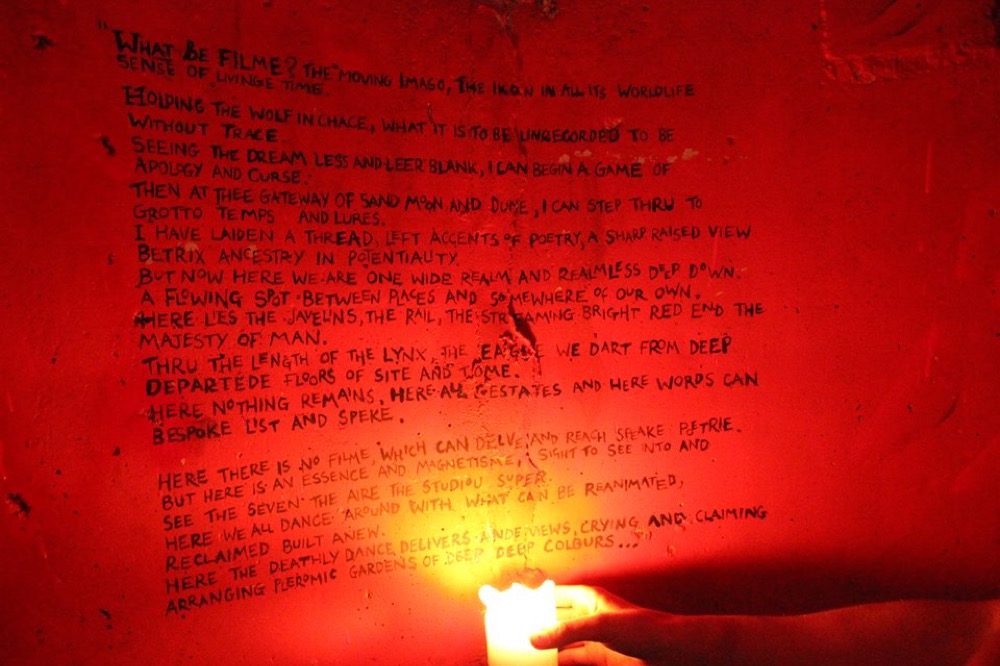 "WHAT BE FILME? THE MOVING IMAGO, THE IKON IN ALL ITS WORLDLIFE
SENSE OF LIVINGE TIME.
HOLDING THE WOLF IN CHACE, WHAT IT IS TO BE UNRECORDED TO BE
WITHOUT TRACE
SEEING THE DREAM LESS AND LEER BLANK, I CAN BEGIN A GAME OF
APOLOGY AND CURSE.
THEN AT THEE GATEWAY OF SAND MOON AND DUNE, I CAN STEP THRU TO
GROTTO TEMPS AND LURES.
I HAVE LAIDEN A THREAD, LEFT ACCENTS OF POETRY, A SHARP RAISED VIEW
BETRIX ANCESTRY IN POTENTIALITY.
BUT NOW HERE WE ARE ONE WIDE REALM AND REALMLESS DEEP DOWN.
A FLOWING SPOT BETWEEN PLACES AND SOMEWHERE OF OUR OWN.
HERE LIES THE JAVELINS, THE RAIL, THE STREAMING BRIGHT RED END THE
MAJESTY OF MAN.
THRU THE LENGTH OF THE LYNX, THE EAGLE WE DART FROM DEEP
DEPARTEDE FLOORS OF SITE AND TOME.
HERE NOTHING REMAINS, HERE ALL GESTATES AND HERE WORDS CAN
BESPOKE LIST AND SPEKE.
HERE THERE IS NO FILME WHICH CAN DELVE AND REACH SPEAKE PETRIE.
BUT HERE IS AN ESSENCE AND MAGNETISME, SIGHT TO SEE INTO AND
SEE THE SEVEN THE AIRE THE STUDIOU SUPER.
HERE WE ALL DANCE AROUND WITH WHAT CAN BE REANIMATED,
RECLAIMED BUILT ANEW.
HERE THE DEATHLY DANCE DELIVERS ANDE VIEWS, CRYING AND CLAIMING
ARRANGING PLEROMIC GARDENS OF DEEP DEEP COLOURS..."